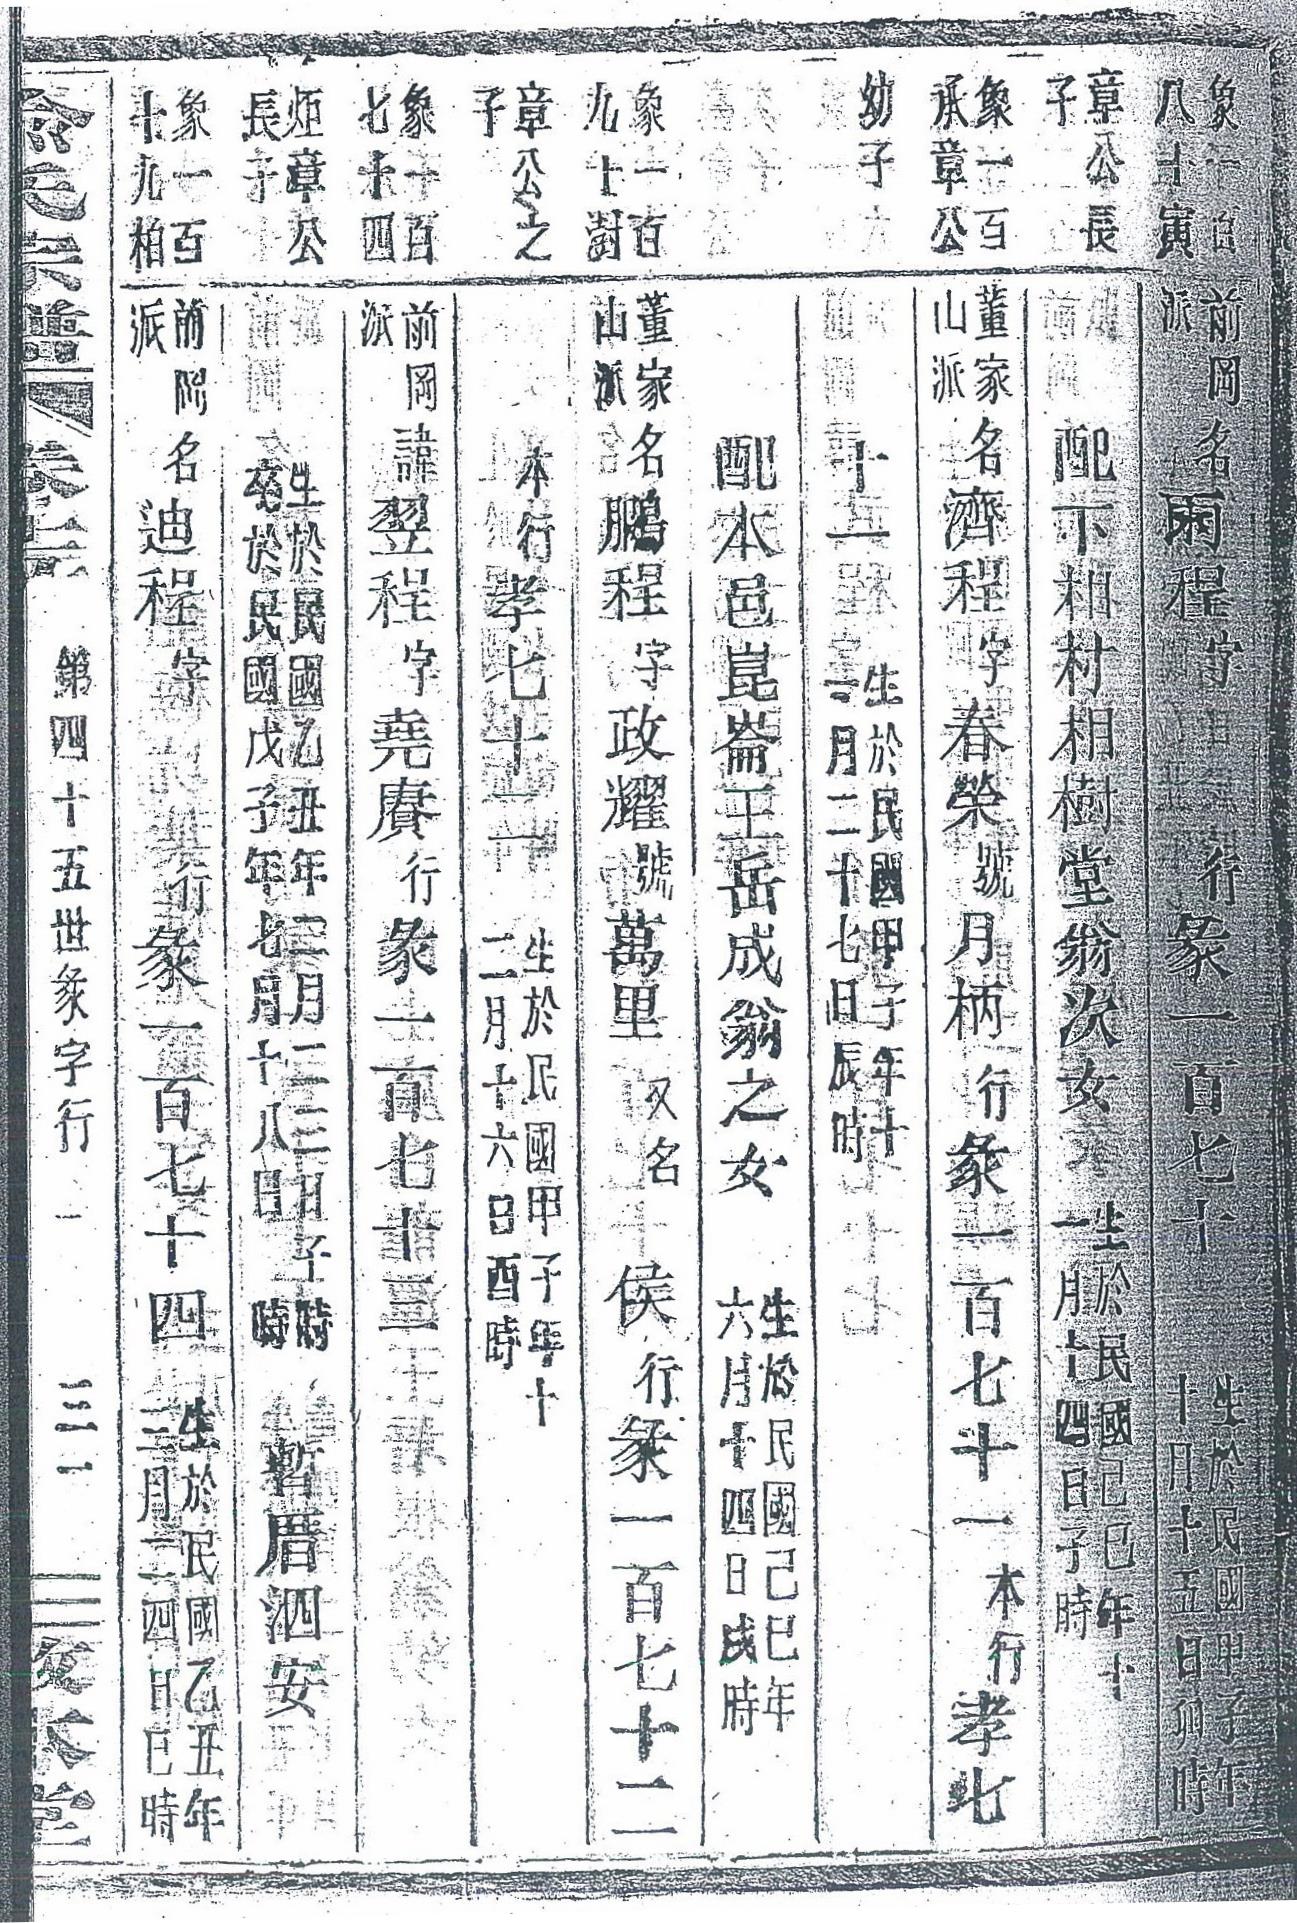 象一百
八十寅
前岡
派
名雨程字
行彖一百七十
生於民國甲子年
十月十五日卯時
章公長
子
配下相村相樹堂翁次女
生於民國己巳年十
一月十四日子時
象一百
承章公
董家
山派
名濟程字春榮號月柄行彖一百七十一
本行孝七
幼子
十一
生於民國甲子年十
二月二十七日辰時
配本邑崑崙王岳成翁之女
生於民國己巳年
六月十四日戌時
象一百
九十澍
董家
山派
名鵬程字政耀號萬里
又名
侯行彖一百七十二
章公之
子
本行孝七十二
生於民國甲子年十
二月十六日酉時
象一百
七十四
前岡
派
諱翌程字堯賡行彖一百七十三
炬章公
長子
生於民國乙丑年二月二三日子時
卒於民國戊子年七月十八日時
暫厝泗安
象一百
十九柏
前岡
派
名迪程字
行彖一百七十四
生於民國乙丑年
三月二四日巳時
俞氏宗譜
卷
第四十五世彖字行
三二一
敦本堂